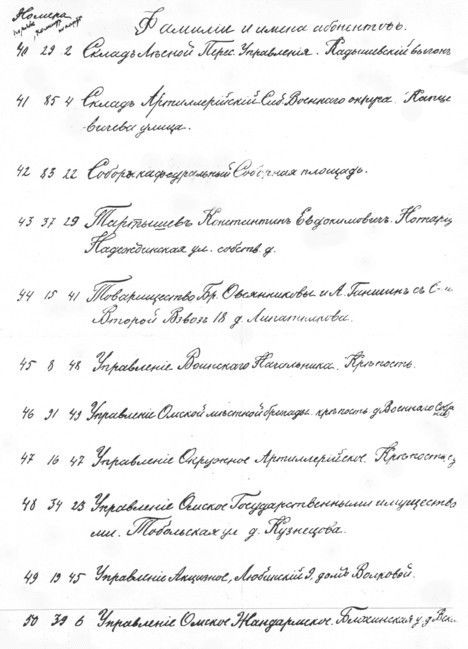 Номера
Фамиліи и имена абонентовъ.
40 29 2 Складъ Лѣсной Перес. Управленія. Кадышевскій выгонъ
41 85 4 Складъ Артиллерійскій Сиб. Военнаго округа Капце
вичева улица.
42 83 22 Соборъ кафедральный Соборная площадь.
43 37 29 Тартышевъ Константинъ Евдокимовичъ. Нотаріу
Надеждинская ул. собств. д.
44 15 41 Товарищество Бр. Овсянниковы и А. Ганшинъ съ С-и
Второй Взвозъ 18 д. Липатникова.
45 8 48 Управленіе Воинскаго Начальника. Крѣпость.
46 91 49 Управленіе Омской мѣстной бригады. крѣпость д. Военнаго Собр
47 16 47 Управленіе Окружное Артиллерійское. Крѣпость
48 34 23 Управленіе Омское Государственными имущество
ми. Тобольская ул д. Кузнецова.
49 19 45 Управленіе Акцизное, Любинскій домъ Волровой.
50 39 6 Управленіе Омское Жандармское.